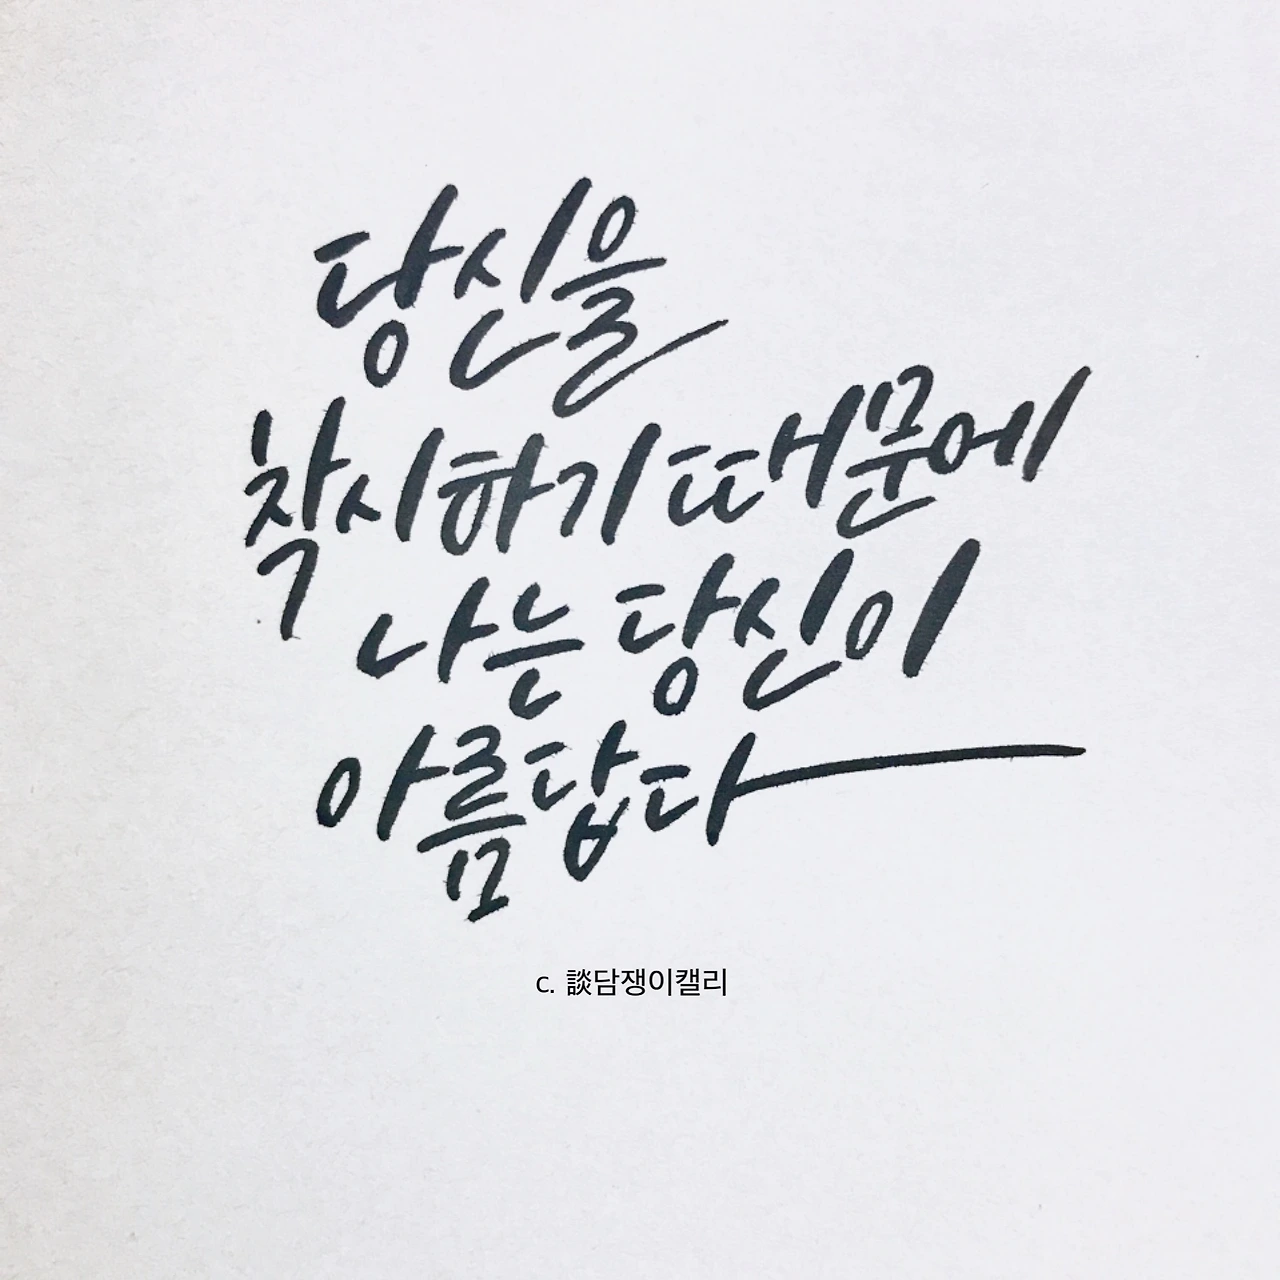 당신을
착시하기 때문에
나는 당신이
아름답다
c. 談담쟁이캘리